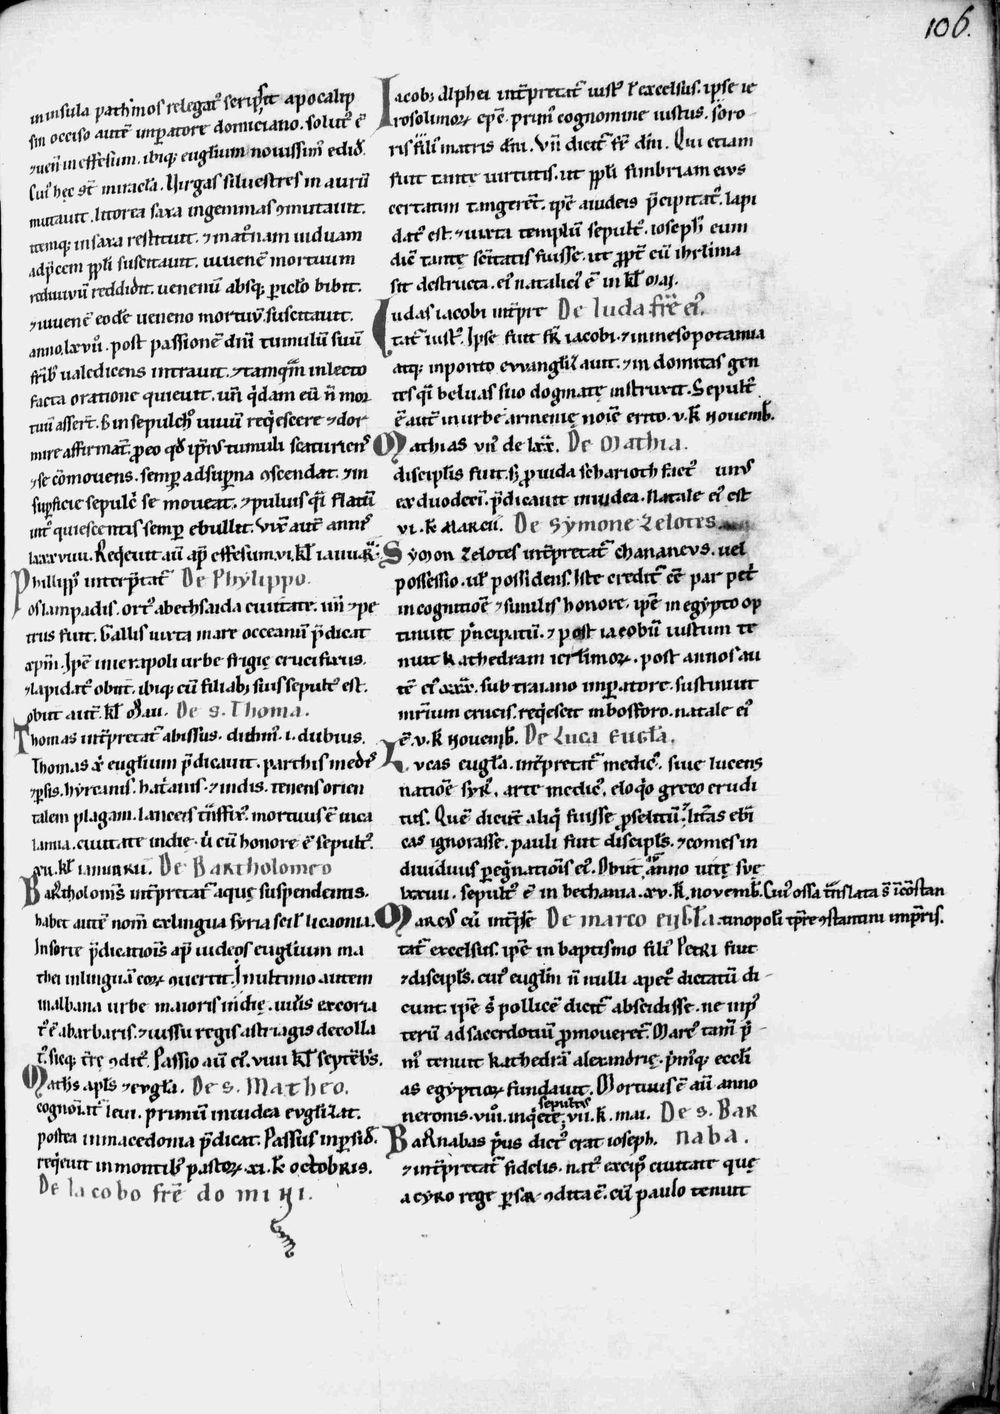 106.
in insula pathmos relegatꝰ scripsit apocalip
sin occiso autē imperatore domiciano. solutꝰ ē
⁊ uenit in effesum. ibiq; euglium nouissimū edid̄.
Cuiꝰ hec st̄ miracła. Uirgas siluestres in aurū
mutauit. litorea saxa in gemmas ꝯmutauit.
itemq; in saxa restituit. ⁊ mat͛nam uiduam
ad p̄cem ppłi suscitauit. iuuenē mortuum
rediuiuū reddidit. uenenū absq; pericło bibit.
⁊ iuuenē eode ueneno mortuū suscitauit.
anno. lxvıı. post passionē dn̄i tumulū suū
fr̄ibꝰ ualedicens intrauit. ⁊ tamqm̄ in lecto
facta oratione quieuit. un̄ q̇dam eū n̄ mor
tuū asser̄t. s; in sepulchro uiuū reqͥescere ⁊ dor
mire affirmāt. ꝓeo qd̄ ipsiꝰ tumuli scaturiens
⁊ se cōmouens. semꝑ ad suꝑna ꝯscendat. ⁊ in
suꝑficie sepulc̄ se moueat. ⁊ puluis qͥ flatū
int͛ quiescentis semꝑ ebullit. Vix̄ autē annꝰ
lxxxviiii. Reqͥeuit aū ap̄ effesum. vi. kł ianuar̄.
Philippꝰ interp̄tat͛ De Phylippo.
os lampadis. ortꝰ a bethsaida ciuitate. un̄ ⁊ pe
trus fuit. Gallis iuxta mare occeanū p̄dicat
xpm̄. Ipē in ierapoli urbe frigię crucifixus.
⁊ lapidatꝰ obiit. ibiq; cū filiabꝰ suis sepultꝰ est.
obiit autē. kł mai. De s. Thoma.
Thomas int͛pretat͛ abissus. didimꝰ. i. dubius.
Thomas xp̄i euglium p̄dicauit. parthis medꝰ
⁊ ꝑsis. hyrcanis. batrianis. ⁊ indis. tenens orien
talem plagam. lanceis t͛nsfixꝰ. mortuus ē in ca
lamia. ciuitate indie. u̇ cū honore ē sepultꝰ.
xii. kł ianuarii. De Bartholomeo
Bartholomeꝰ int͛pretat͛ aquę suspendentis.
habet autē nom̄ ex lingua syria scił licionia.
In sorte p̄dicationis ap̄ iudeos euglium ma
thei in lingua eoꝝ ꝯuertit. In ultimo autem
in albana urbe maioris indię. uiuus excoria
tꝰ ē a barbaris. ⁊ iussu regis astriagis decolla
tꝰ. sicq; t͛re ꝯditꝰ. Passio aū eiꝰ. viiii kł septēbs.
Matheꝰ apłs ⁊ euglͣ. De s. Matheo.
cognoīat͛ leui. primū in iudea euglizat.
postea in macedonia p̄dicat. Passus in persid̄.
reqͥeuit in montibꝰ pastoꝝ. xi. kł octobris.
De Iacobo fr̄e domini.
Iacobꝰ Alphei int͛pretat͛ iustꝰ ł excelsus. ipse ie
rosolimoꝝ epc̄. primū cognomine iustus. soro
ris filiꝰ matris dn̄i. Vn̄ dicit͛ fr̄ dn̄i. Qui etiam
fuit tantę uirtutis. ut ppłi fimbriam eius
certatim tangerēt. ipē a iudeis p̄cipitatꝰ. lapi
datꝰ est. ⁊ iuxta templū sepultꝰ. ioseph̄ eum
diē tantę sc̄itatis fuisse. ut ꝓpt͛ eū ihrłima
sit destructa. eiꝰ nataliciꝰ ē in kł mai.
Iudas iacobi int͛pre De Iuda fr̄e eiꝰ.
tat͛ iustꝰ. Ipse fuit fr̄ iacobi. ⁊ in mesopotamia
atq; in ponto euangłizauit. ⁊ indomitas gen
tes q̄si beluas suo dogmate instruxit. Sepultꝰ
ē autē in urbe armenię noīe erito. v. kł Nouemb̄.
Mathias vnꝰ de lxx. De Mathia.
discipłis fuit. s; ꝓ iuda scharioth factꝰ vnus
ex duodeci. p̄dicauit in iudea. Natale eiꝰ est
vi. kł Marcii. De Symone Zelotes
Symon zelotes int͛pretat͛ chananeus. uel
possessio. uł possidens. Iste credit͛ eē par pet͛
in cognitioē ⁊ similis honore. ipē in egypto op
tinuit prīcipatū. ⁊ post iacobū iustum te
nuit kathedram ierłimoꝝ. post annos au
tē eiꝰ cxx. sub traiano imꝑatore. sustinuit
mr̄ium crucis. reqͥescit in bosforo. natale eiꝰ
ē. v. kł Nouemb̄. De Luca Euglͣa.
Lucas euglͣa. int͛pretat͛ medicꝰ. siue lucens
natioē syrꝰ. arte medicꝰ. eloqͥo greco erudi
tus. Quē dicūt aliqͥ fuisse ꝓselitū. ⁊ litͣas ebrͣ
cas ignorasse. pauli fuit discipłs. ⁊ comes in
diuiduus peg̊nationis eiꝰ. Obiit anno uitę suę
lxxvii. sepultꝰ ē in bethania. xv. kł novemb̄. Cuiꝰ ossa t͛nslata st̄ ī cōstan
Marcus cū int͛pre De marco euglͣa. tinopolī tp̄re ꝯstantini imp̄ris.
tat͛ excelsus. ipē in baptismo filiꝰ Petri fuit
⁊ discipłs. cuiꝰ euglm̄ n̄ nulli a pet͛ dictatū di
cunt. ipē s; pollicē dicit͛ abscidisse. ne inp̄s
terū ad sacerdotiū ꝓmoueret͛. Marcꝰ tam̄ p̄
mꝰ tenuit kathedrā alexandrię. prīmq; eccłi
as egyptioꝝ fundauit. Mortuus ē aū anno
neronis. viii. inq̇ete sepultꝰ. vii. kł. mai. De s. Bar
Barnabas p̄us dictꝰ erat ioseph. naba.
⁊ int͛pretat͛ fidelis. natꝰ ex cipro ciuitate quę
a cyro rege ꝑsaꝝ ꝯdita ē. cū paulo tenuit